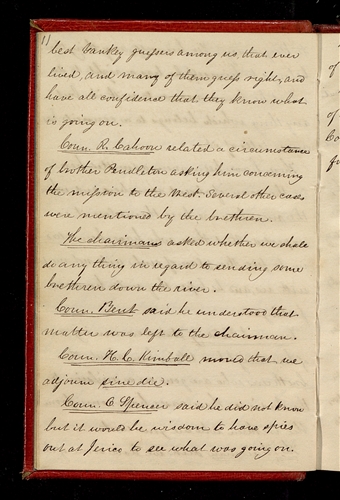 11)
best Yankey guessers among us, that ever
lived, and many of them guess right, and
have all confidence that they know what
is going on.
Coun. R. Cahoon related a circumstance
of brother Pendleton asking him concerning
the mission to the West. Several other cases
were mentioned by the brethren.
The chairman asked whether we shall
do any thing in regard to sending some
brethren down the river.
Coun. Bent said he understood that
matter was left to the chairman.
Coun. H. C. Kimball moved that we
adjourn sine die.
Coun. O Spencer said he did not know
but it would be wisdom to have spies
out at to see what was going on.
of
of
Co